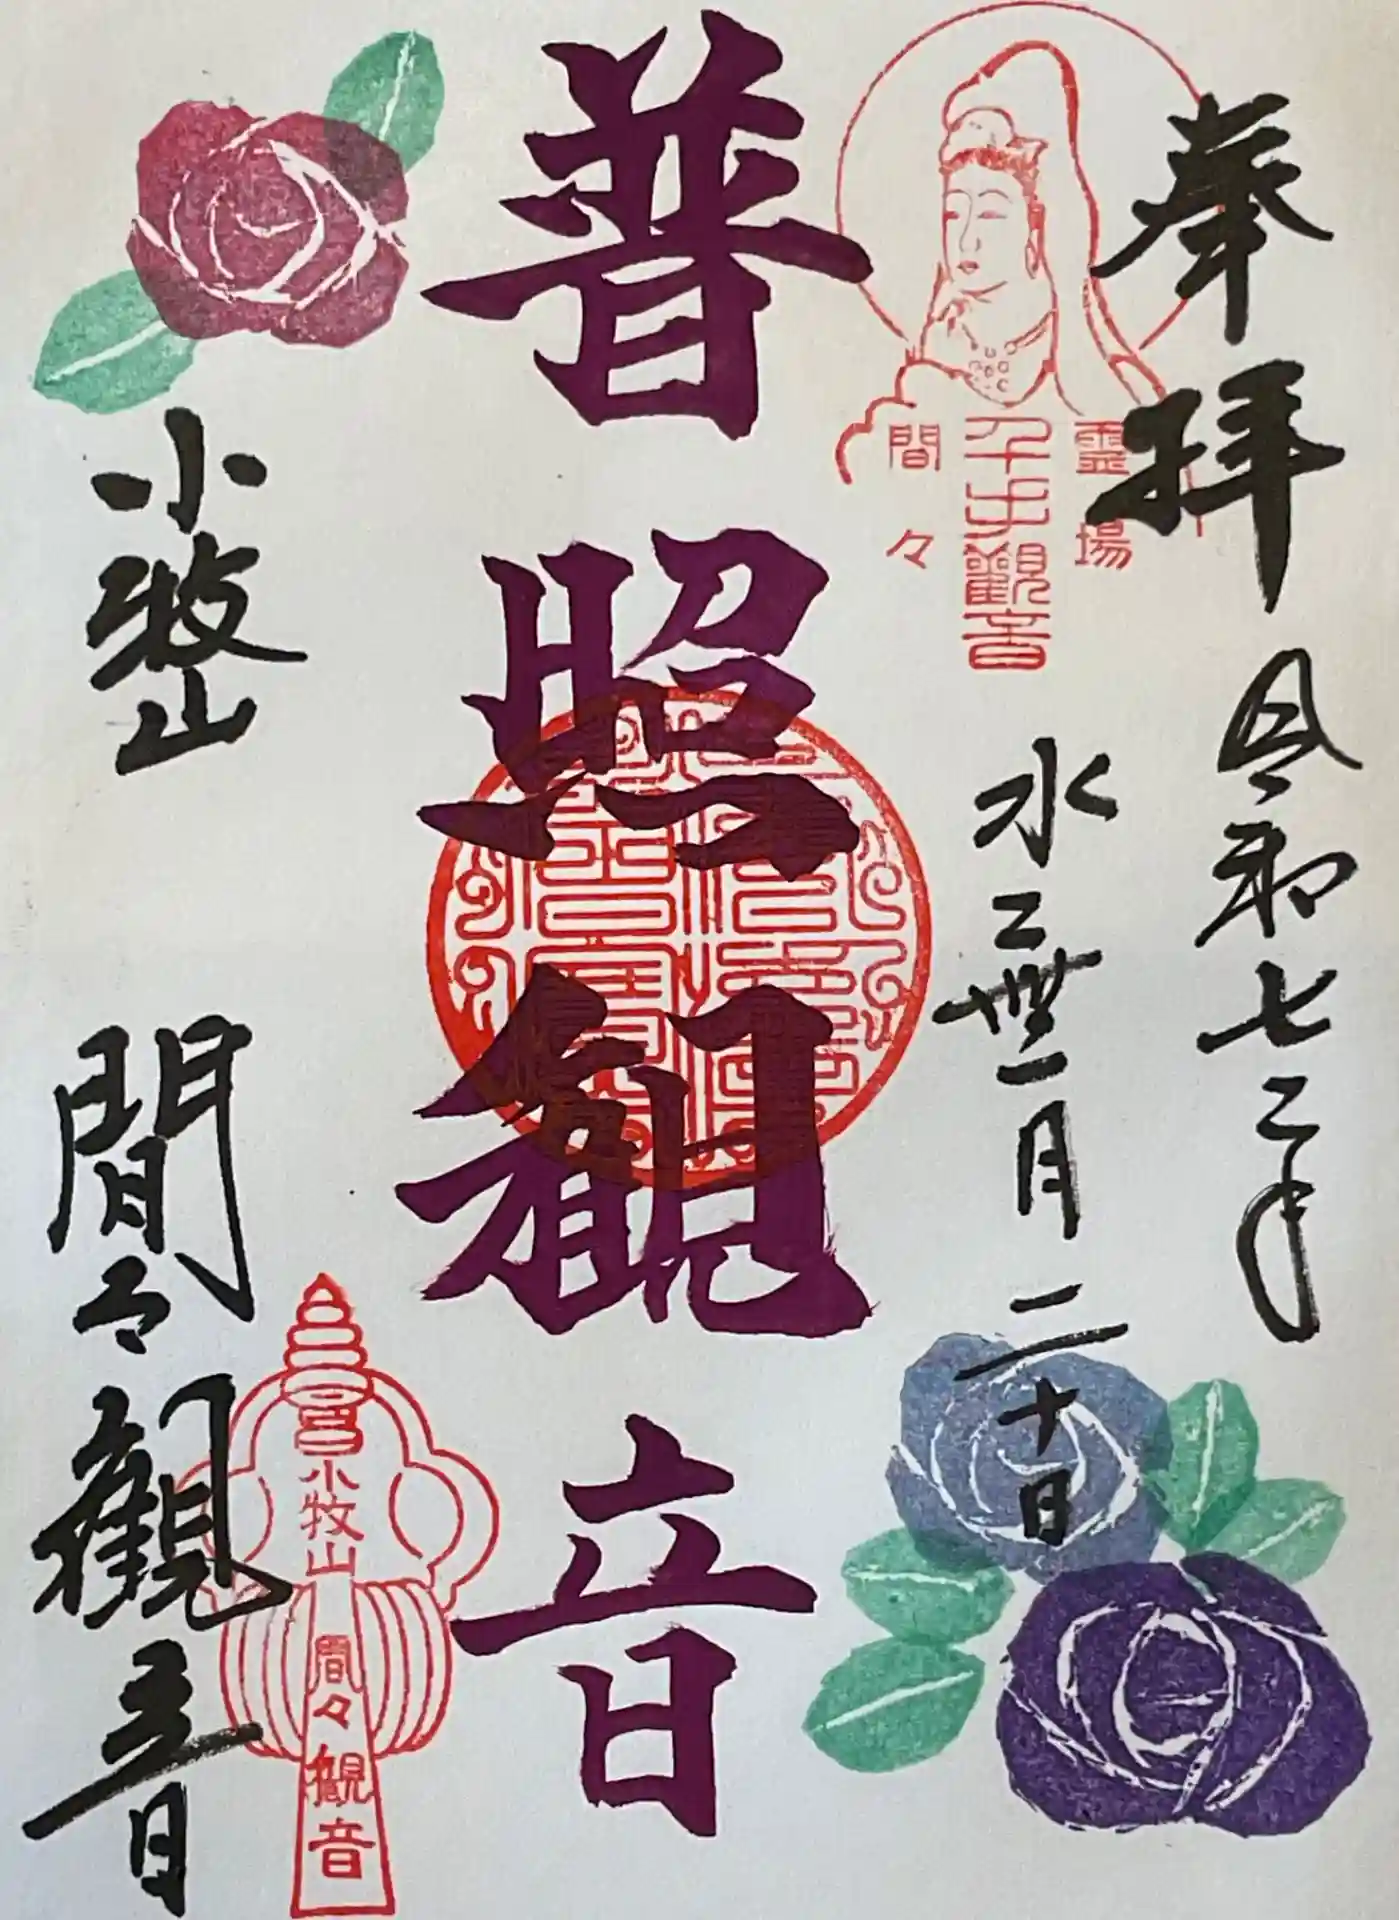 奉拝
令和七年
水無月二十日
霊場
千手觀音
間々
普照観音
小牧山
間々觀音
小牧山
間々觀音